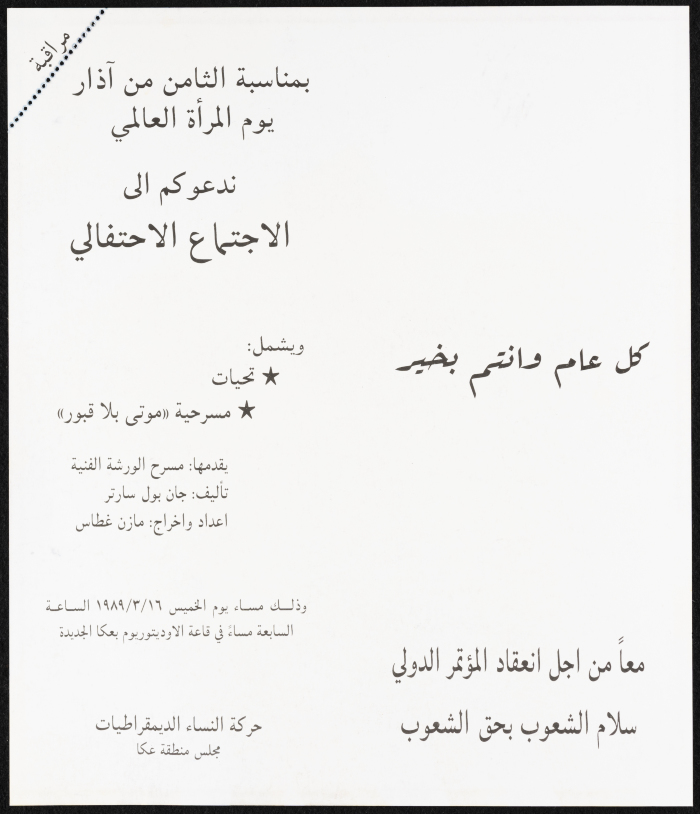 كل عام وانتم بخير
معاً من اجل انعقاد المؤتمر الدولي
سلام الشعوب بحق الشعوب
مراقبة
بمناسبة الثامن من آذار
يوم المرأة العالمي
ندعوكم الى
الاجتماع الاحتفالي
ويشمل:
★ تحيات
★ مسرحية «موتى بلا قبور»
يقدمها: مسرح الورشة الفنية
تأليف: جان بول سارتر
اعداد واخراج: مازن غطاس
وذلـك مساء يوم الخميس ١٩٨٩/٣/١٦ الساعـة
السابعة مساءً في قاعة الاوديتوريوم بعكا الجديدة
حركة النساء الديمقراطيات
مجلس منطقة عكا